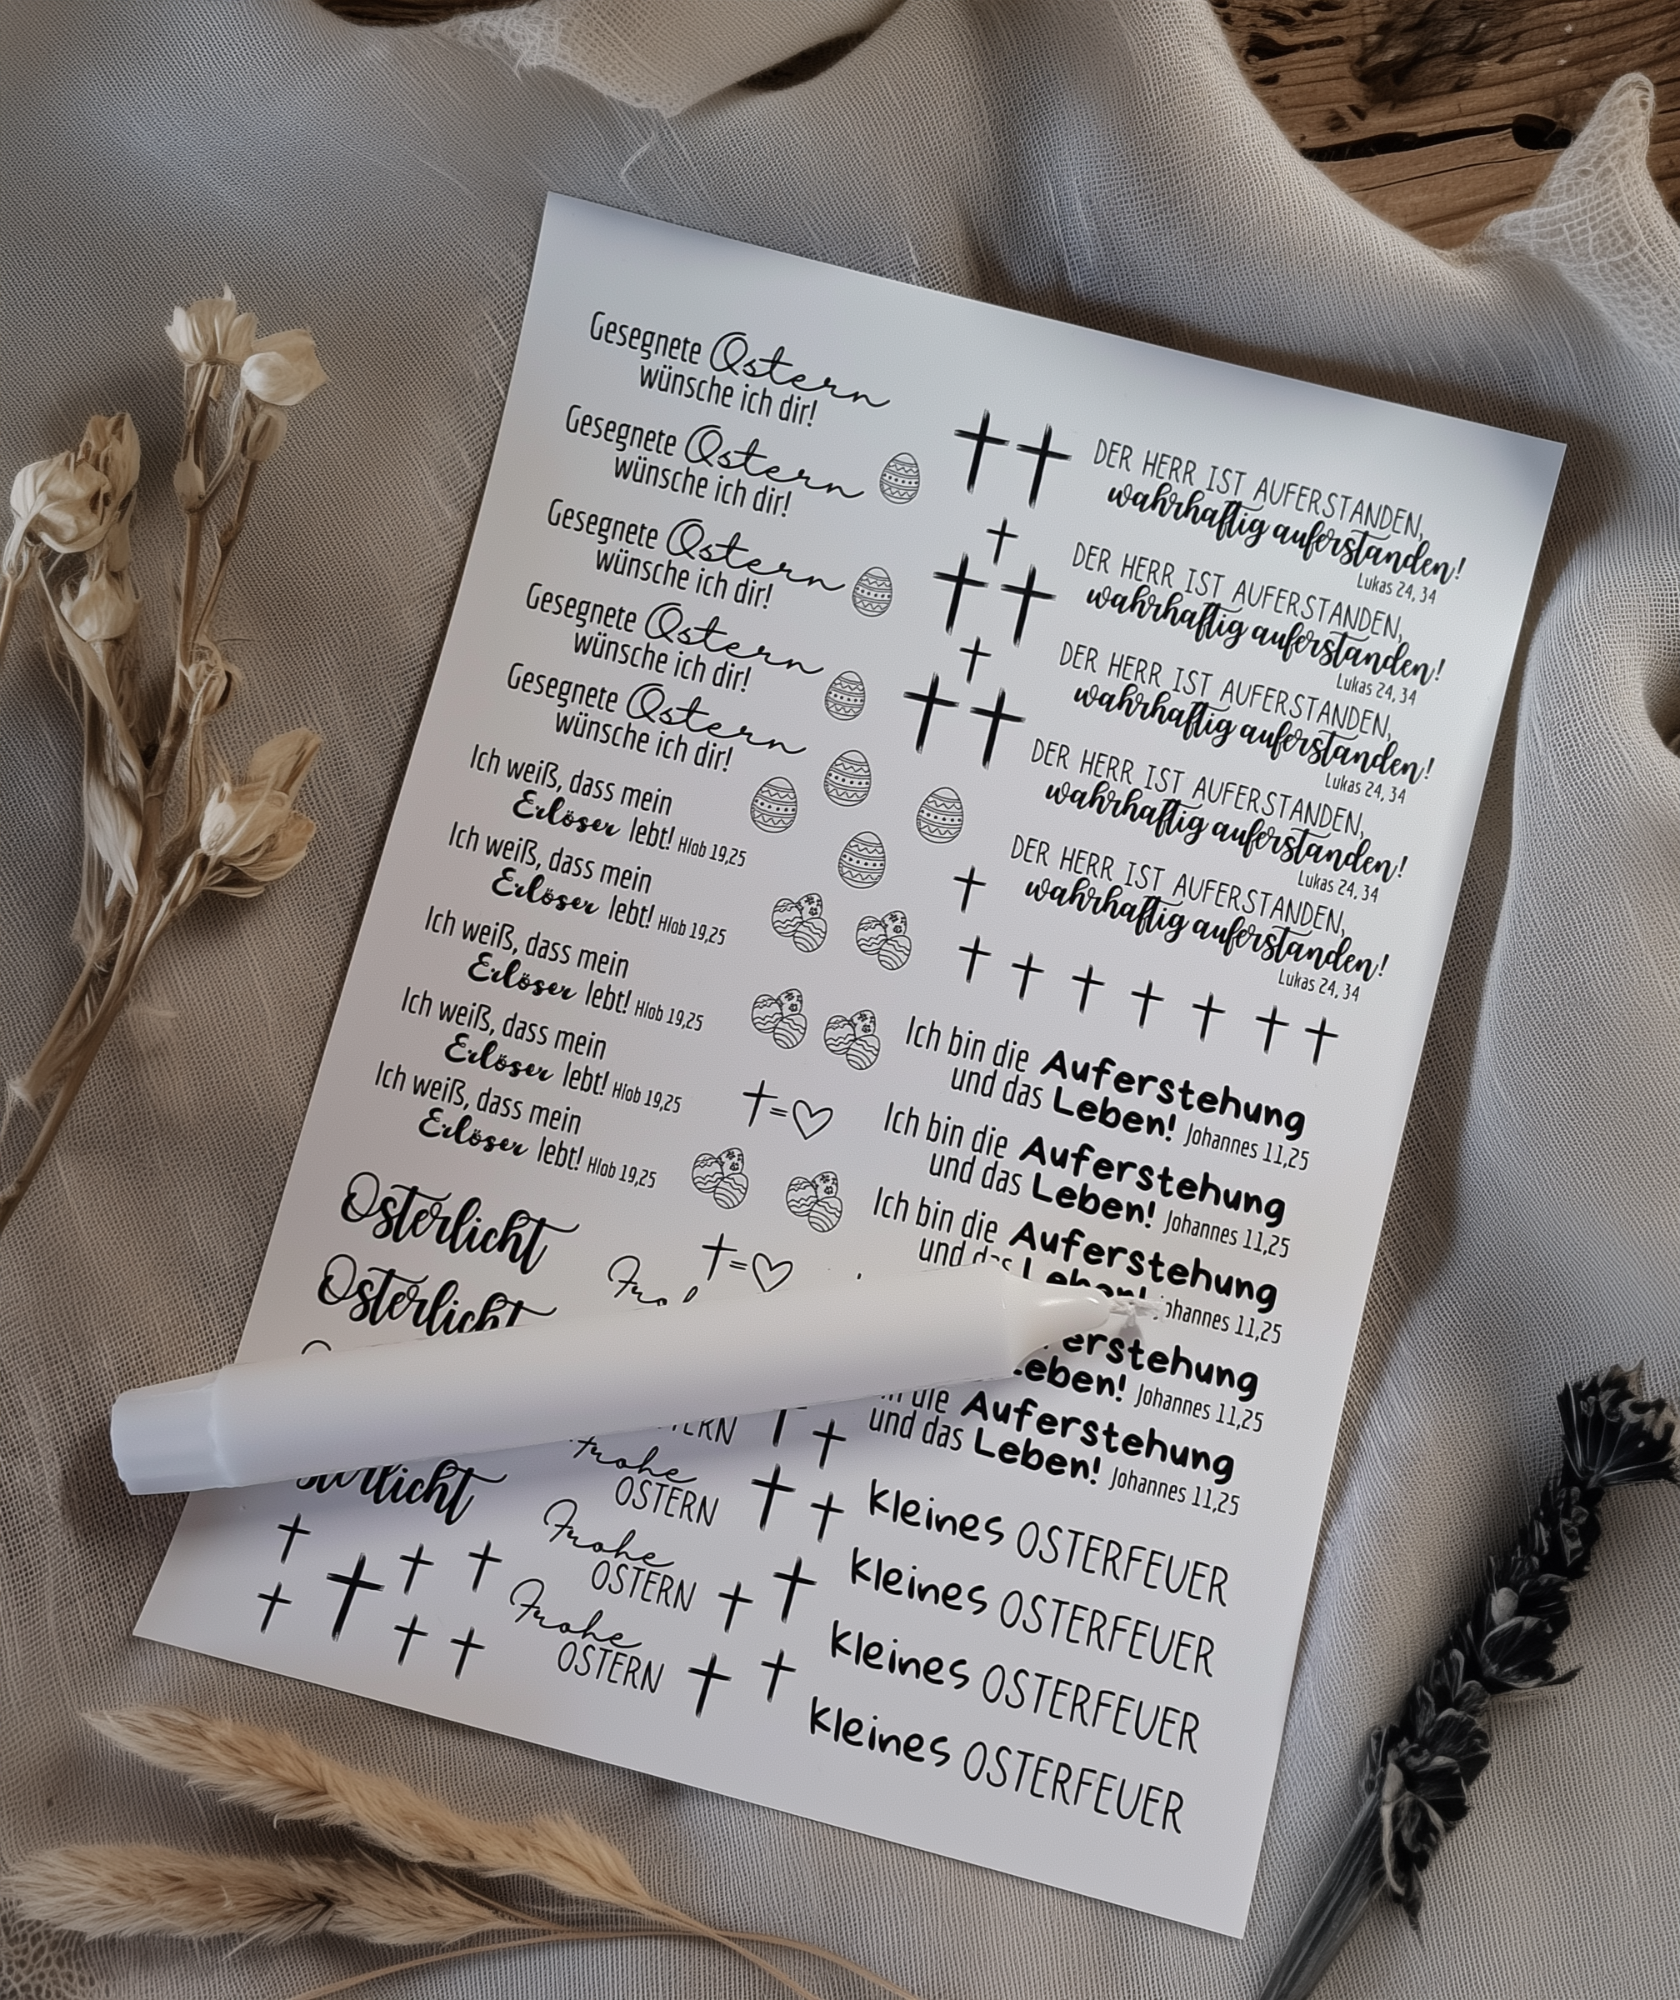 Gesegnete Ostern
wünsche ich dir!
Gesegnete Ostern
wünsche ich dir!
Gesegnete Ostern
wünsche ich dir!
Gesegnete Ostern
wünsche ich dir!
Gesegnete Ostern
wünsche ich dir!
Ich weiß, dass mein
Erlöser lebt! Hiob 19,25
Ich weiß, dass mein
Erlöser lebt! Hiob 19,25
Ich weiß, dass mein
Erlöser lebt! Hiob 19,25
Ich weiß, dass mein
Erlöser lebt! Hiob 19,25
Ich weiß, dass mein
Erlöser lebt! Hiob 19,25
Osterlicht
Osterlicht
sterlicht
OSTERN
Frohe
OSTERN
Frohe
OSTERN
Frohe
OSTERN
DER HERR IST AUFERSTANDEN,
wahrhaftig auferstanden!
Lukas 24, 34
DER HERR IST AUFERSTANDEN,
wahrhaftig auferstanden!
Lukas 24, 34
DER HERR IST AUFERSTANDEN,
wahrhaftig auferstanden!
Lukas 24, 34
DER HERR IST AUFERSTANDEN,
wahrhaftig auferstanden!
Lukas 24, 34
DER HERR IST AUFERSTANDEN,
wahrhaftig auferstanden!
Lukas 24, 34
Ich bin die Auferstehung
und das Leben! Johannes 11,25
Ich bin die Auferstehung
und das Leben! Johannes 11,25
Ich bin die Auferstehung
und das Leben! Johannes 11,25
erstehung
Leben! Johannes 11,25
die Auferstehung
und das Leben! Johannes 11,25
kleines OSTERFEUER
kleines OSTERFEUER
kleines OSTERFEUER
kleines OSTERFEUER